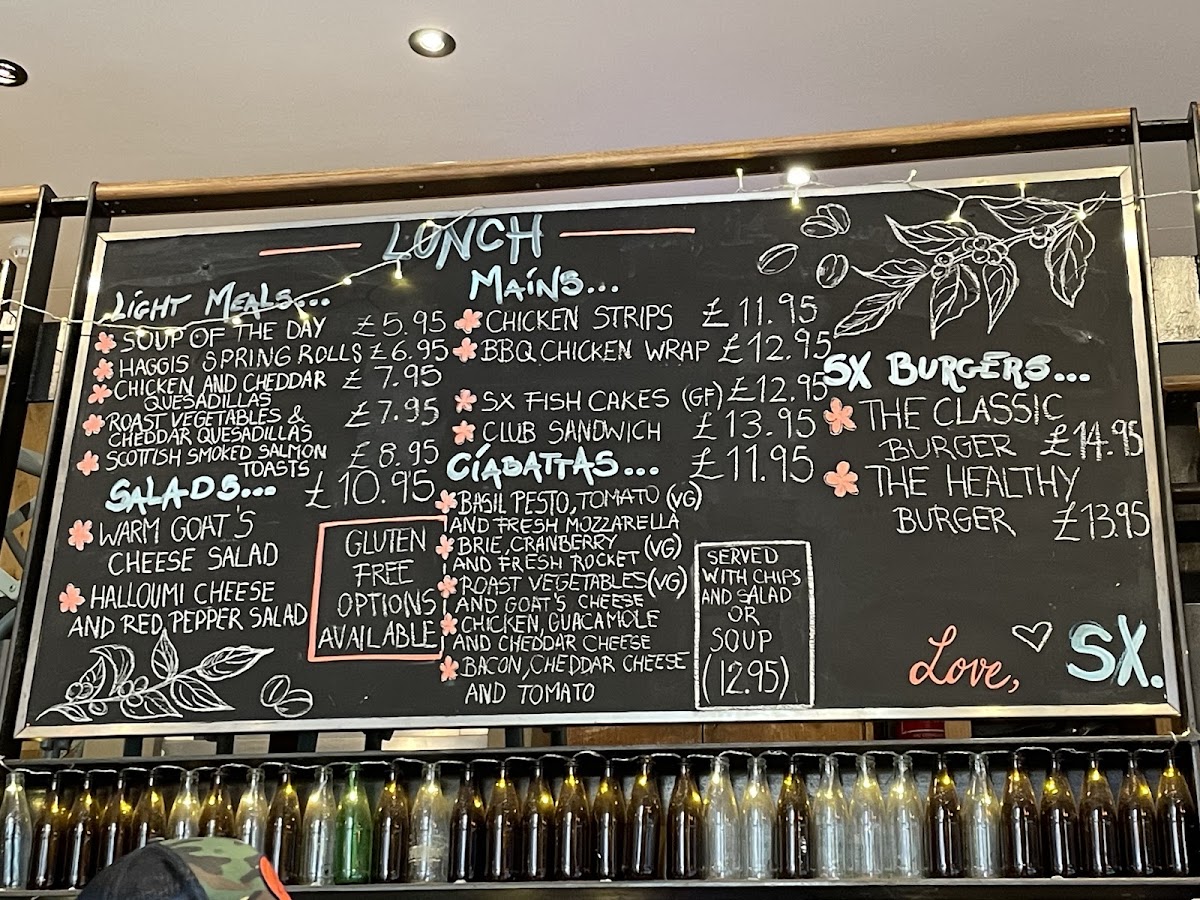 LUNCH
LIGHT MEALS...
SOUP OF THE DAY £5.95
HAGGIS SPRING ROLLS £6.95
CHICKEN AND CHEDDAR £7.95
QUESADILLAS
ROAST VEGETABLES & £7.95
CHEDDAR QUESADILLAS
SCOTTISH SMOKED SALMON £8.95
TOASTS
SALADS... £10.95
WARM GOAT'S
CHEESE SALAD
HALLOUMI CHEESE
AND RED PEPPER SALAD
GLUTEN
FREE
OPTIONS
AVAILABLE
MAINS...
CHICKEN STRIPS £11.95
BBQ CHICKEN WRAP £12.95
SX FISH CAKES (GF) £12.95
CLUB SANDWICH £13.95
CIABATTAS... £11.95
BASIL PESTO, TOMATO (VG)
AND FRESH MOZZARELLA
BRIE, CRANBERRY (VG)
AND FRESH ROCKET
ROAST VEGETABLES (VG)
AND GOAT'S CHEESE
CHICKEN, GUACAMOLE
AND CHEDDAR CHEESE
BACON, CHEDDAR CHEESE
AND TOMATO
SERVED
WITH CHIPS
AND SALAD
OR
SOUP
(12.95)
SX BURGERS...
THE CLASSIC
BURGER £14.95
THE HEALTHY
BURGER £13.95
Love, SX.